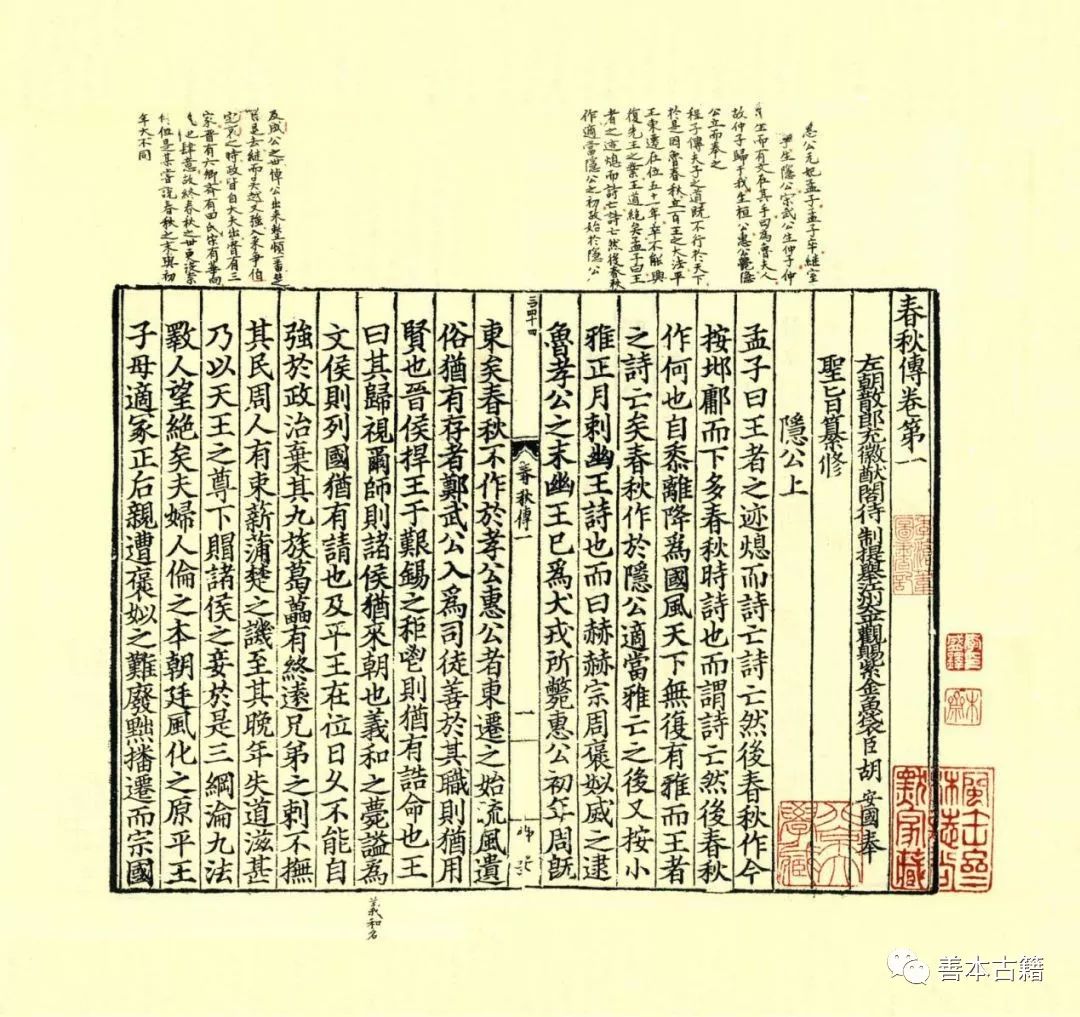 春秋傳卷第一
左朝散郎充徽猷閣待制提舉江州太平觀賜紫金魚袋臣胡安國奉
聖旨纂修
隱公上
孟子曰王者之迹熄而詩亡詩亡然後春秋作今
按邶鄘而下多春秋時詩也而謂詩亡然後春秋
作何也自黍離降爲國風天下無復有雅而王者
之詩亡矣春秋作於隱公適當雅亡之後又按小
雅正月刺幽王詩也而曰赫赫宗周褒姒烕之逮
魯孝公之末幽王已爲犬戎所斃惠公初年周旣
三四十四
春秋傳一
一
東矣春秋不作於孝公惠公者東遷之始流風遺
俗猶有存者鄭武公入爲司徒善於其職則猶用
賢也晉侯捍王于艱錫之秬鬯則猶有誥命也王
曰其歸視爾師則諸侯猶來朝也義和之薨謚爲
文侯則列國猶有請也及平王在位日久不能自
強於政治棄其九族葛藟有終遠兄弟之刺不撫
其民周人有束薪蒲楚之譏至其晚年失道滋甚
乃以天王之尊下賵諸侯之妾於是三綱淪九法
斁人望絕矣夫婦人倫之本朝廷風化之原平王
子母適冢正后親遭褒姒之難廢黜播遷而宗國
惠公元妃孟子孟子卒繼室
生隱公宋武公生仲子仲
生而有文在其手曰為魯夫人
故仲子歸于我生桓公惠公薨隱
公立而奉之
程子傳夫子之道既不行於天下
於是因魯春秋立百王之大法平
王東遷在位五十一年卒不能興
復先王之業王道絕矣孟子曰王
者之迹熄而詩亡詩亡然後春秋
作適當隱公之初故始於隱公
及成公之世悼公出來整頓一番楚
去繼而吳越又強入來爭伯
定哀之時政皆自大夫出魯有三
家晉有六卿齊有田氏宋有華向
也肆意故終春秋之世更沒奈
何但是某嘗說春秋之末與初
年大不同
義和名
善本古籍